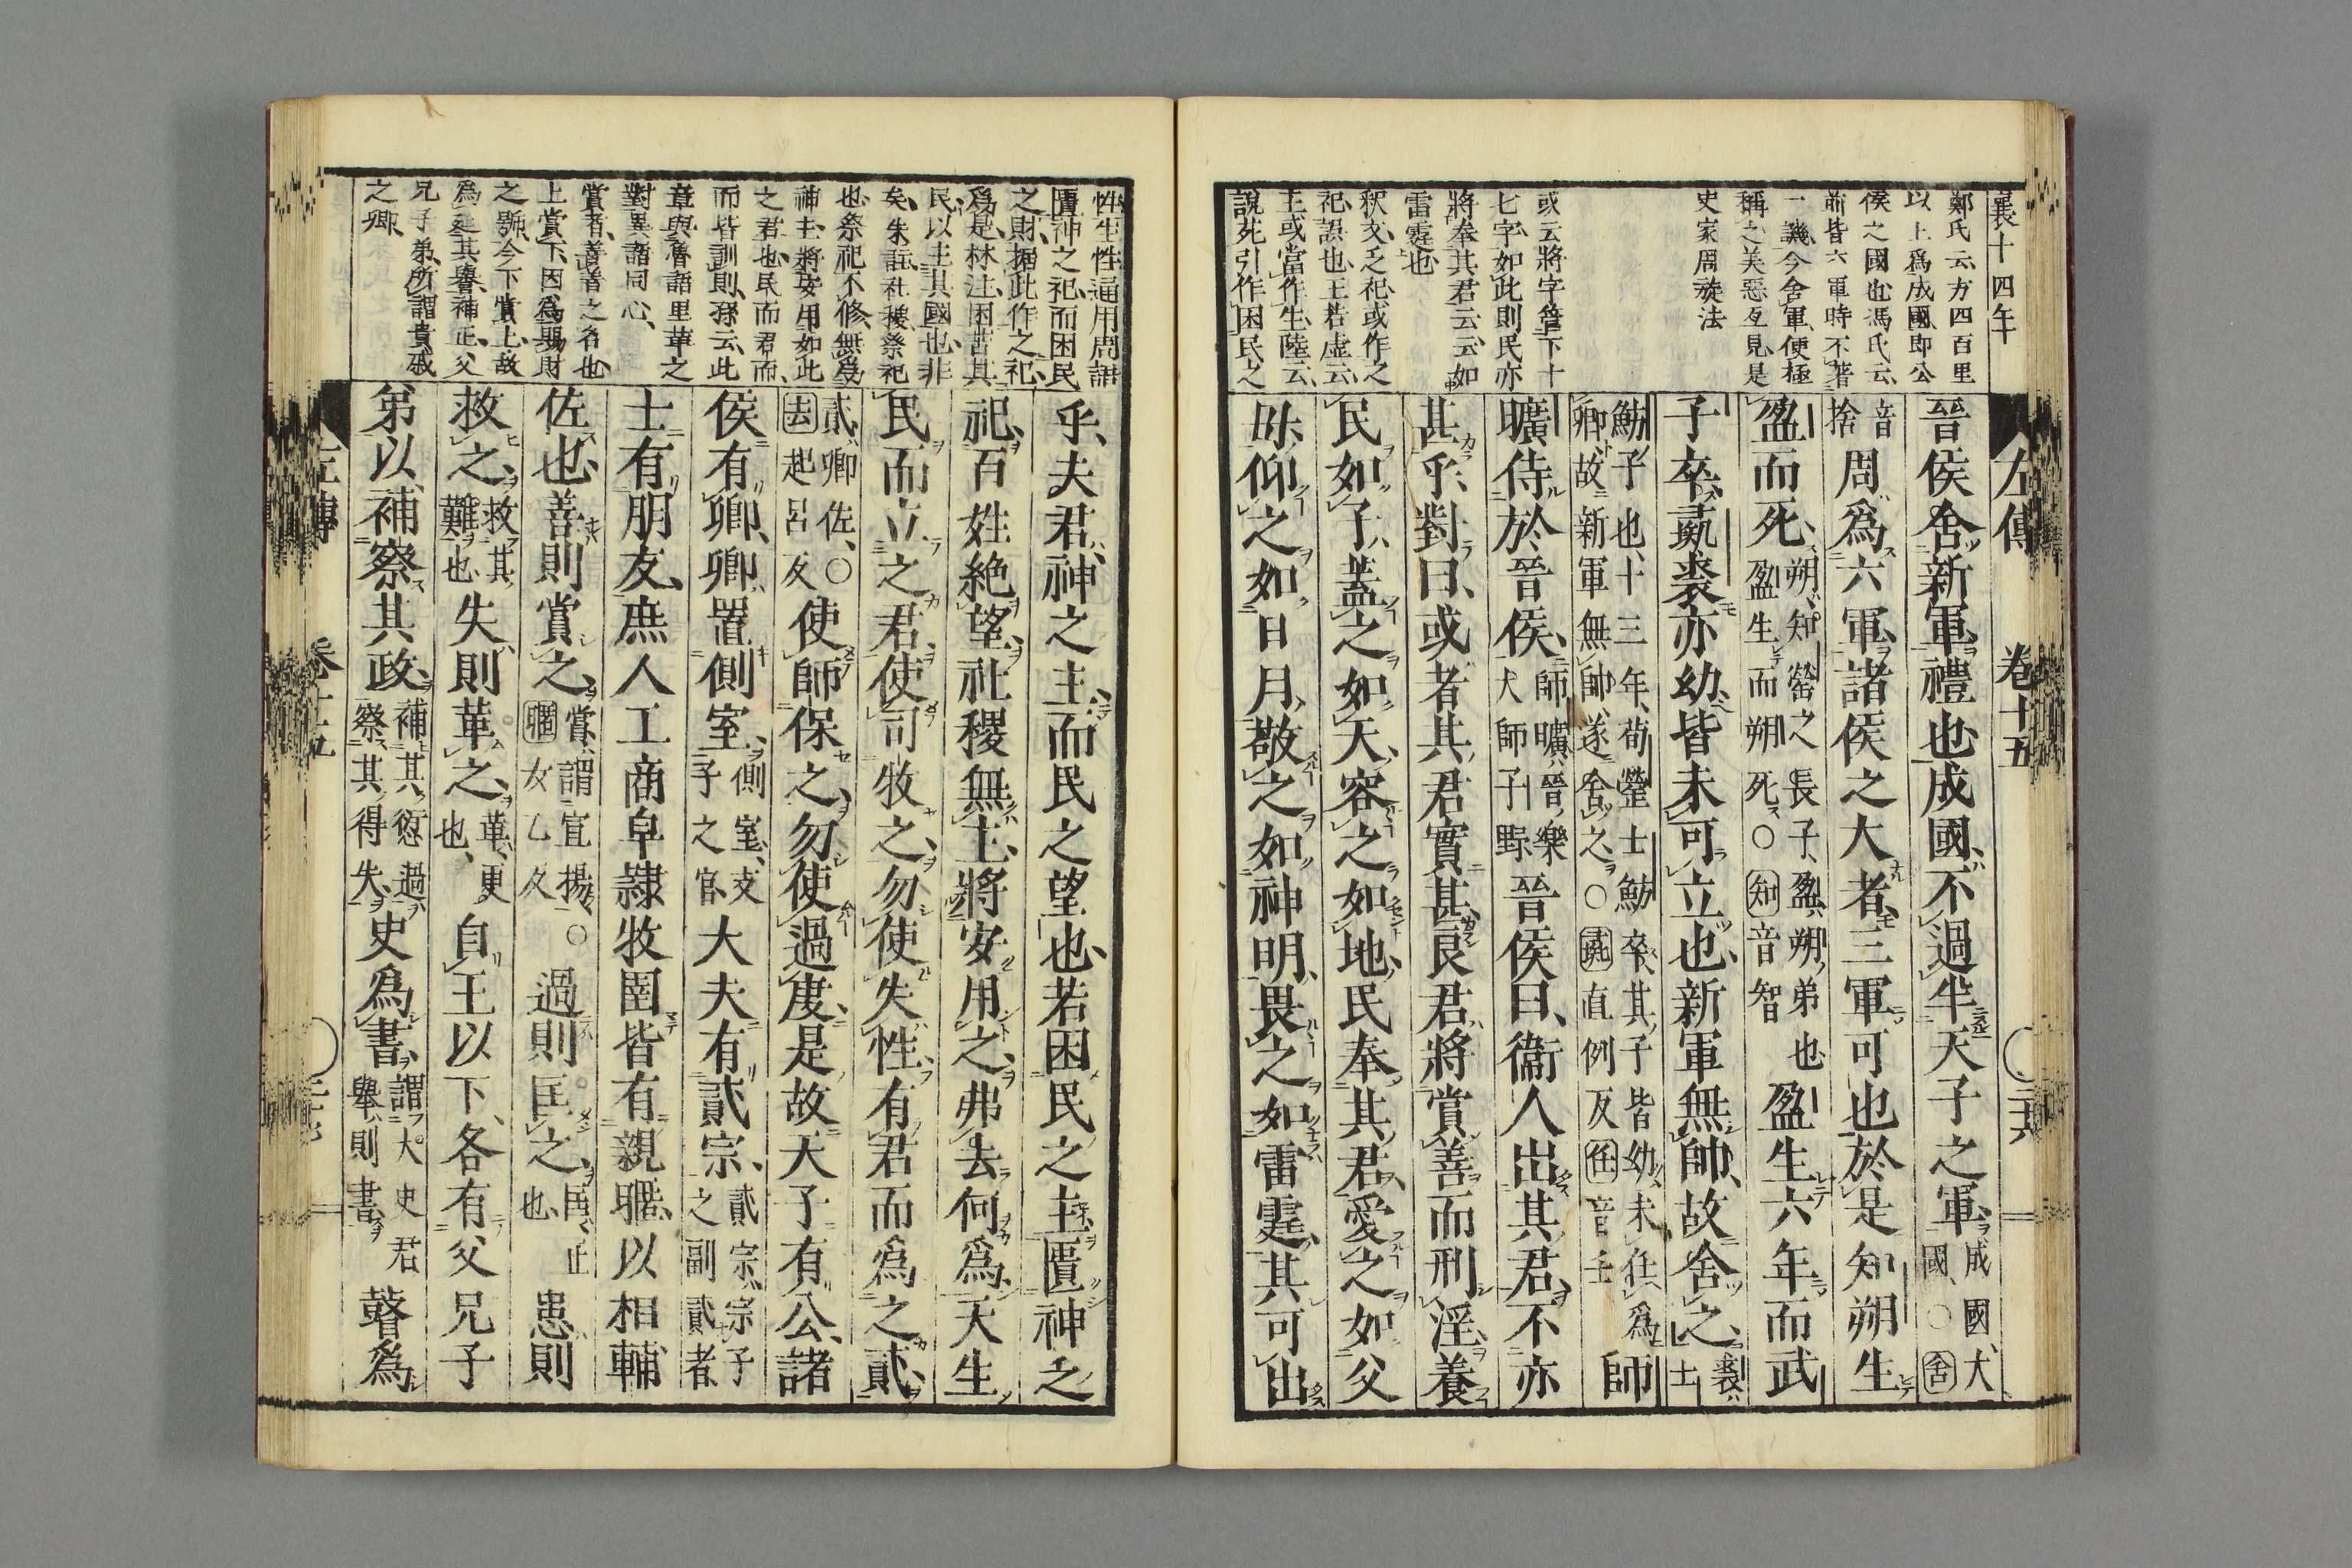 襄十四年
左傳　卷十五　二十六
鄭氏云方四百里
以上爲成國卽公
侯之國也馮氏云
前皆六軍時不著
一譏今舍軍便極
稱之美惡互見是
史家周旋法
或云將字管下十
七字如此則民亦
將奉其君云云如
雷霆也
釈文乏祀或作之
祀誤也王若虚云
主或當作生陸云
說苑引作困民之
晉侯舍新軍禮也成國不過半天子之軍成國大國○舍
音捨周爲六軍諸侯之大者三軍可也於是知朔生
盈而死朔知罃之長子盈朔弟也盈生而朔死○知音智盈生六年而武
子卒彘裘亦幼皆未可立也新軍無帥故舍之裘士
魴子也十三年荀罃士魴卒其子皆幼未任爲卿故新軍無帥遂舍之○彘直例反任音壬師
曠侍於晉侯師曠晉樂大師子野晉侯曰衞人出其君不亦
甚乎對曰或者其君實甚良君將賞善而刑淫養
民如子蓋之如天容之如地民奉其君愛之如父
母仰之如日月敬之如神明畏之如雷霆其可出
性生性通用周語
匱神之祀而困民
之財據此作之祀
爲是林注困苦其
民以主其國也非
矣朱註社稷祭祀
也祭祀不修無受
神主將安用如此
之君也民而君而
而皆訓則孫云此
章與魯語里革之
對異語同心
賞者善善之名也
上賞下因爲賜財
之號今下賞上故
爲延其譽補正父
兄子弟所謂貴戚
之卿
乎夫君神之主而民之望也若困民之主匱神之
祀百姓絶望社稷無主將安用之弗去何爲天生
民而立之君使司牧之勿使失性有君而爲之貳
貳卿佐○去起呂反使師保之勿使過度是故天子有公諸
侯有卿卿置側室側室支子之官大夫有貳宗貳宗宗子之副貳者
士有朋友庶人工商皁隸牧圉皆有親暱以相輔
佐也善則賞之賞謂宣揚○暱女乙反過則匡之匡正也患則
救之救其難也失則革之革更也自王以下各有父兄子
弟以補察其政補其愆過察其得失史爲書謂大史君舉則書瞽爲
左傳　卷十五